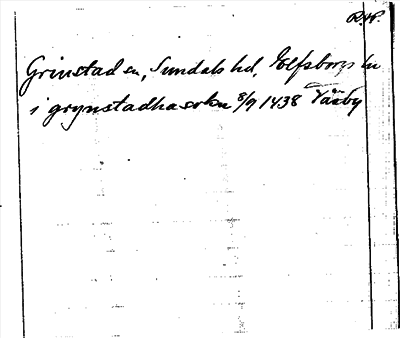 R.A.P.
Grinstad sn, Sundals hd, Elfsborgs län
i grynstadha sokn 8/9 1438 Väsby